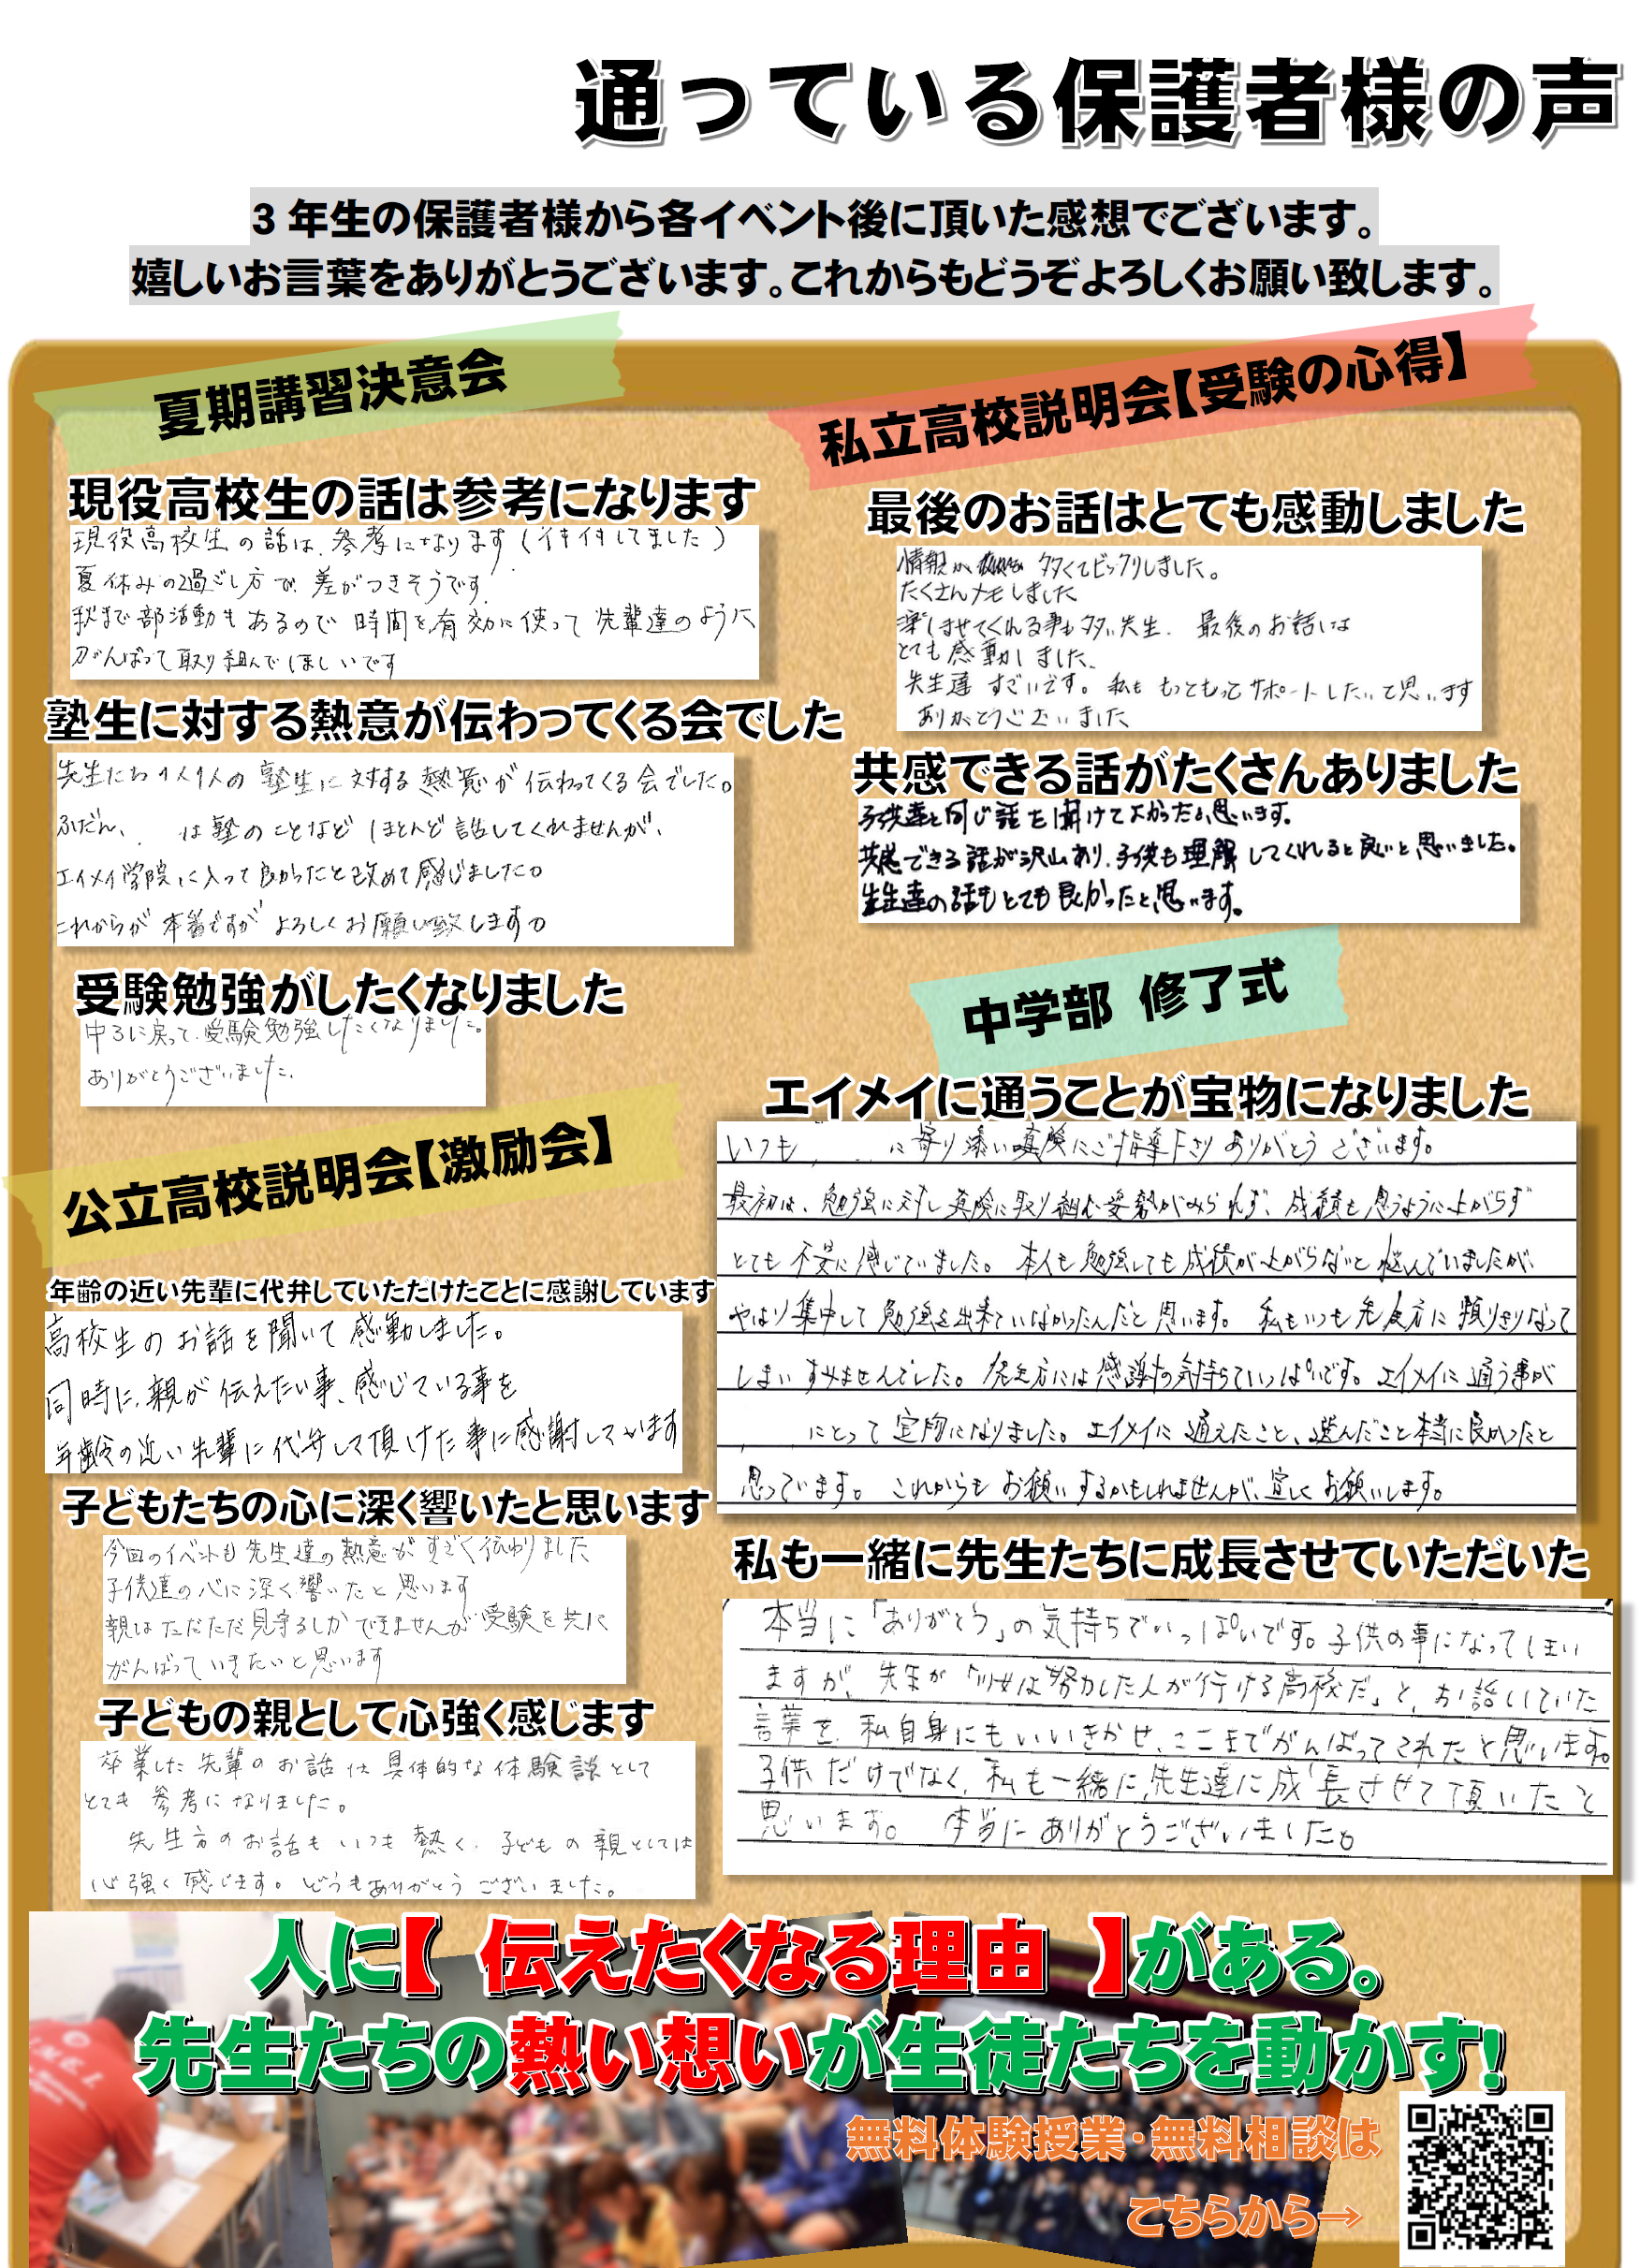 通っている保護者様の声
3年生の保護者様から各イベント後に頂いた感想でございます。
嬉しいお言葉をありがとうございます。これからもどうぞよろしくお願い致します。
夏期講習決意会
現役高校生の話は参考になります
現役高校生の話は、参考になります(イキイキしてました)
夏休みの過ごし方で、差がつきそうです。
秋まで部活動もあるので時間を有効に使って先輩達のように
がんばって取り組んでほしいです
塾生に対する熱意が伝わってくる会でした
先生たち1人1人の塾生に対する熱意が伝わってくる会でした。
ふだん、は塾のことなどほとんど話してくれませんが、
エイメイ学院に入って良かったと改めて感じました。
これからが本番ですがよろしくお願い致します。
受験勉強がしたくなりました
中3に戻って、受験勉強したくなりました。
ありがとうございました。
公立高校説明会【激励会】
年齢の近い先輩に代弁していただけたことに感謝しています
高校生のお話を聞いて感動しました。
同時に、親が伝えたい事、感じている事を
年齢の近い先輩に代弁して頂けた事に感謝しています
子どもたちの心に深く響いたと思います
今回のイベントも先生達の熱意がすごく伝わりました
子供達の心に深く響いたと思います
親はただただ見守るしかできませんが受験を共に
がんばっていきたいと思います
子どもの親として心強く感じます
卒業した先輩のお話は具体的な体験談として
とても参考になりました。
先生方のお話もいつも熱く、子どもの親としては
心強く感じます。どうもありがとうございました。
私立高校説明会【受験の心得】
最後のお話はとても感動しました
情報が多くてビックリしました。
たくさんメモしました
楽しませてくれる事も多い先生、最後のお話は
とても感動しました。
先生達すごいです。私ももっともっとサポートしたいと思います
ありがとうございました
共感できる話がたくさんありました
子供達と同じ話を聞けてよかったと思います。
共感できる話が沢山あり、子供も理解してくれると良いと思いました。
先生達の話もとても良かったと思います。
中学部 修了式
エイメイに通うことが宝物になりました
いつもに寄り添い真険にご指導下さりありがとうございます。
最初は、勉強に対し真険に取り組む姿勢がみられず、成績も思うように上がらず
とても不安に感じていました。本人も勉強しても成績が上がらないと悩んでいましたが、
やはり集中して勉強を出来ていなかったんだと思います。私もいつも先生方に頼りきりなって
しまいすみませんでした。先生方には感謝の気持ちでいっぱいです。エイメイに通う事が
にとって宝物になりました。エイメイに通えたこと、選んだこと本当に良かったと
思っています。これからもお願いするかもしれませんが、宜しくお願いします。
私も一緒に先生たちに成長させていただいた
本当に「ありがとう」の気持ちでいっぱいです。子供の事になってしまい
ますが、先生が「川女は努力した人が行ける高校だ」と、お話していた
言葉を、私自身にもいいきかせ、ここまでがんばってこれたと思います。
子供だけでなく、私も一緒に、先生達に成長させて頂いたと
思います。本当にありがとうございました。
人に【 伝えたくなる理由 】がある。
先生たちの熱い想いが生徒たちを動かす!
無料体験授業・無料相談は
こちらから→